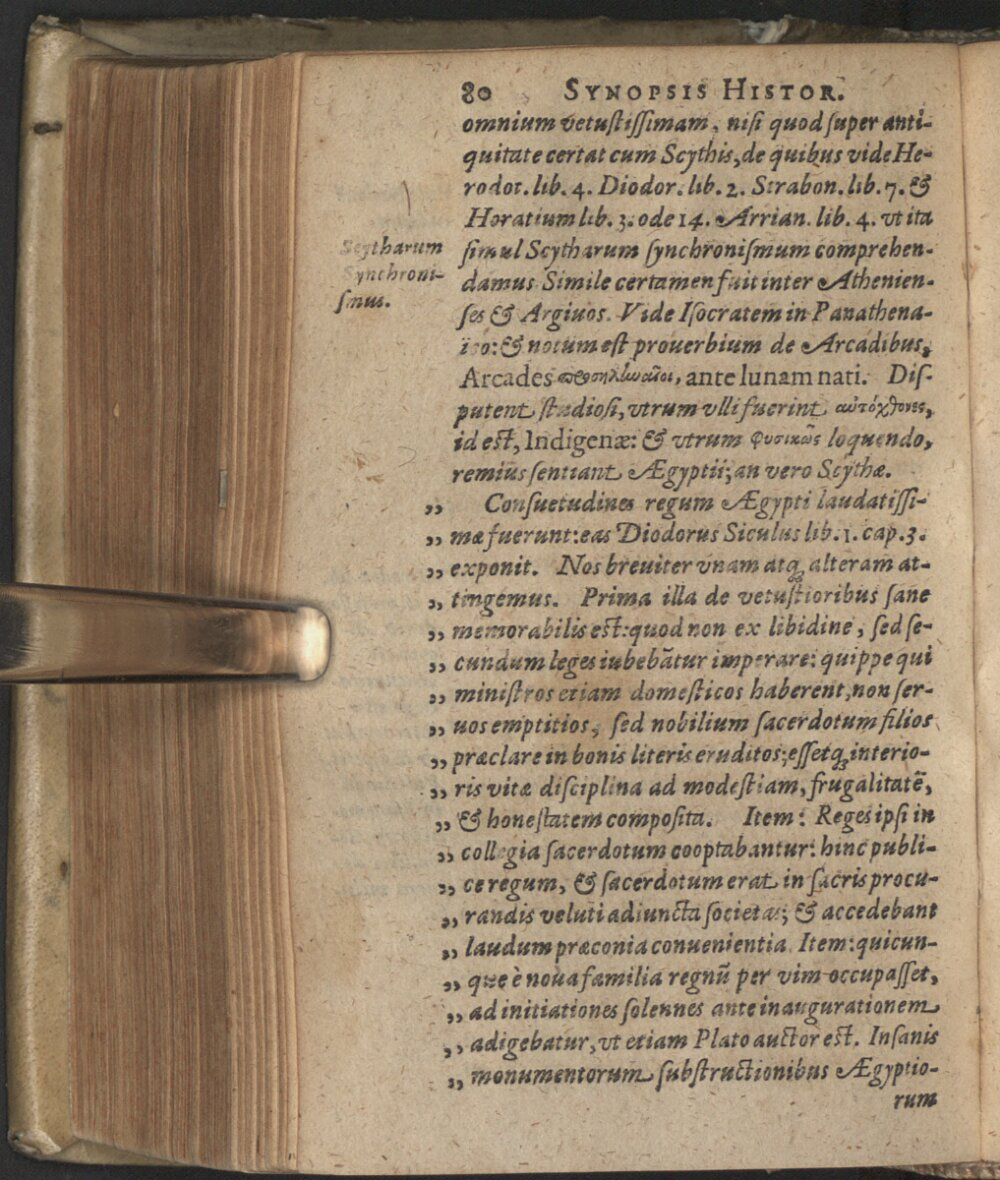 80 SYNOPSIS HISTOR.
omnium vetustissimam, nisi quod super anti-
quitate certat cum Scythis, de quibus vide He-
rodot. lib. 4. Diodor. lib. 2. Strabon. lib. 7. &
Horatium lib. 3. ode 14. Arrian. lib. 4. vt ita
simul Scytharum synchronismum comprehen-
damus. Simile certamen fuit inter Athenien-
ses & Argiuos. Vide Isocratem in Panathena-
ico: & notum est prouerbium de Arcadibus,
Arcades προσηλωῦαῖοι, ante lunam nati. Dis-
putent studiosi, vtrum vlli fuerint αὐτόχθονες,
id est, Indigenæ: & vtrum φυσικῶς loquendo,
remius sentiant Ægyptii; an vero Scythæ.
Scytharum
Synchroni-
smus.
„ Consuetudines regum Ægypti laudatissi-
„ mæ fuerunt: eas Diodorus Siculus lib. 1. cap. 3.
„ exponit. Nos breuiter vnam atq; alteram at-
„ tingemus. Prima illa de vetustioribus sane
„ memorabilis est: quod non ex libidine, sed se-
„ cundum leges iubebātur imperare: quippe qui
„ ministros etiam domesticos haberent, non ser-
„ uos emptitios, sed nobilium sacerdotum filios
„ præclare in bonis literis eruditos; essetq; interio-
„ ris vitæ disciplina ad modestiam, frugalitatē,
„ & honestatem composita. Item: Reges ipsi in
„ collegia sacerdotum cooptabantur: hinc publi-
„ ce regum, & sacerdotum erat in sacris procu-
„ randis veluti adiuncta societas; & accedebant
„ laudum præconia conuenientia. Item: quicun-
„ que è noua familia regnū per vim occupasset,
„ ad initiationes solennes ante inaugurationem
„ adigebatur, vt etiam Plato auctor est. Insanis
„ monumentorum substructionibus Ægyptio-
rum